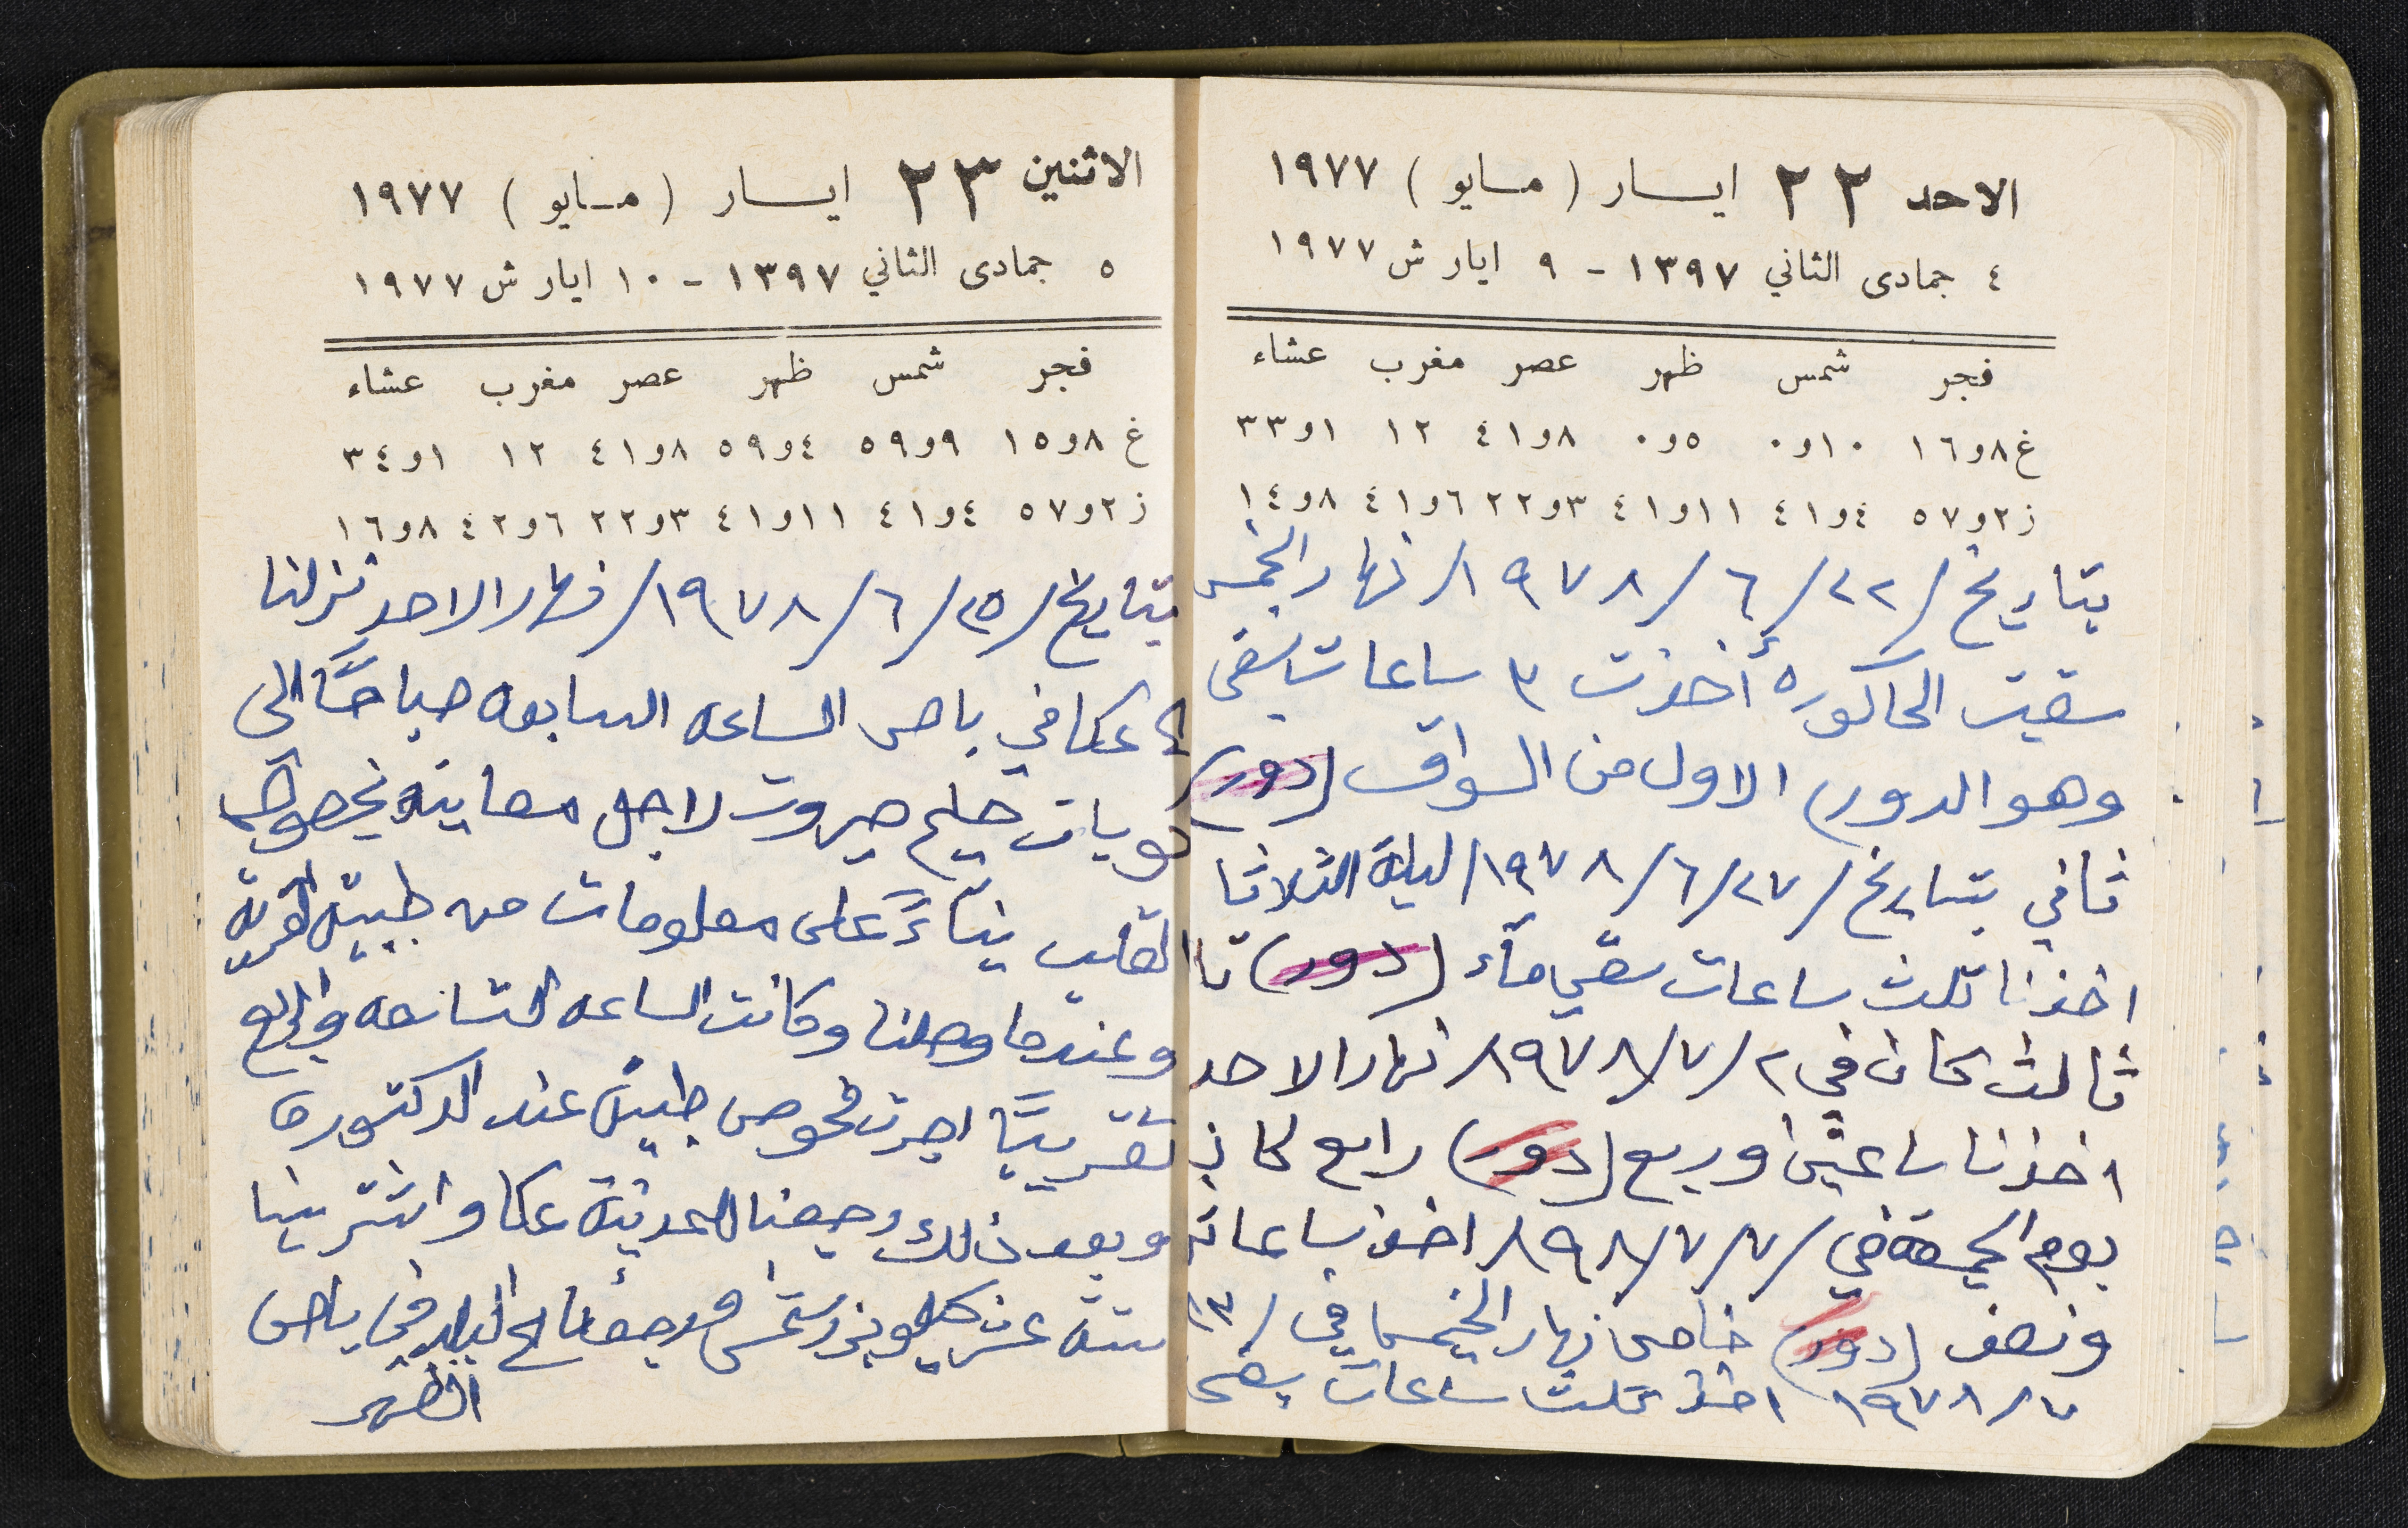 الاحد ٢٢ ايسار (مسايو) ١٩٧٧
٤ جمادى الثاني ١٣٩٧ - ٩ ايار ش ١٩٧٧
فجر شمس ظهر عصر مغرب عشاء
غ ٨و١٦ ١٠و٠ ٥و٠ ٨و٤١ ١٢ ١و٣٣
ز ٢و٥٧ ٤و٤١ ١١و٤١ ٣و٢٢ ٦و٤١ ٨و١٤
بتاريخ /٢٢/ ٦/ ١٩٧٨/ نهار الخمس
سقيت الحاكوره أخذت ٣ ساعات سقى
وهو الدور الاول من السواق (دور)
ثاني بتاريخ /٢٧/ ٦/ ١٩٧٨/ ليلة الثلاثا
اخذنا تلث ساعات سقي ماء (دور)
ثالث كان في ٢/ ٧/ ١٩٧٨/ نهار الاحد
اخذنا ساعتين وربع (دور) رابع كان
يوم الجمعة في /٧/ ٧/ ١٩٨/ اخذ ساعات
ونصف (دور) خامس نهار الخميس في /١٣
٧/ ١٩٧٨ اخذ تلت ساعات سقى
الاثنين ٢٣ ايسار (مسايو) ١٩٧٧
٥ جمادى الثاني ١٣٩٧ - ١٠ ايار ش ١٩٧٧
فجر شمس ظهر عصر مغرب عشاء
غ ٨و١٥ ٩و٥٩ ٤و٥٩ ٨و٤١ ١٢ ١و٣٤
ز ٢و٥٧ ٤و٤١ ١١و٤١ ٣و٢٢ ٦و٤٢ ٨و١٦
بتاريخ /٢٥/ ٦/ ١٩٧٨/ نهار الاحد نزلنا
عكا في باص الساعه السابعه صباحًا الى
لاجل معاينة بخصوص
القلب بناءً على معلومات من طبيب القرية
وعندما وصلنا وكانت الساعه التاسعه والربع
تقريبًا اجرت فحوص طبيه عند الدكتوره
وبعد ذلك رجعنا لمدينة عكا واشترينا
ستة عشر كيلو ورجعنا الى البلد في باص
الظهر